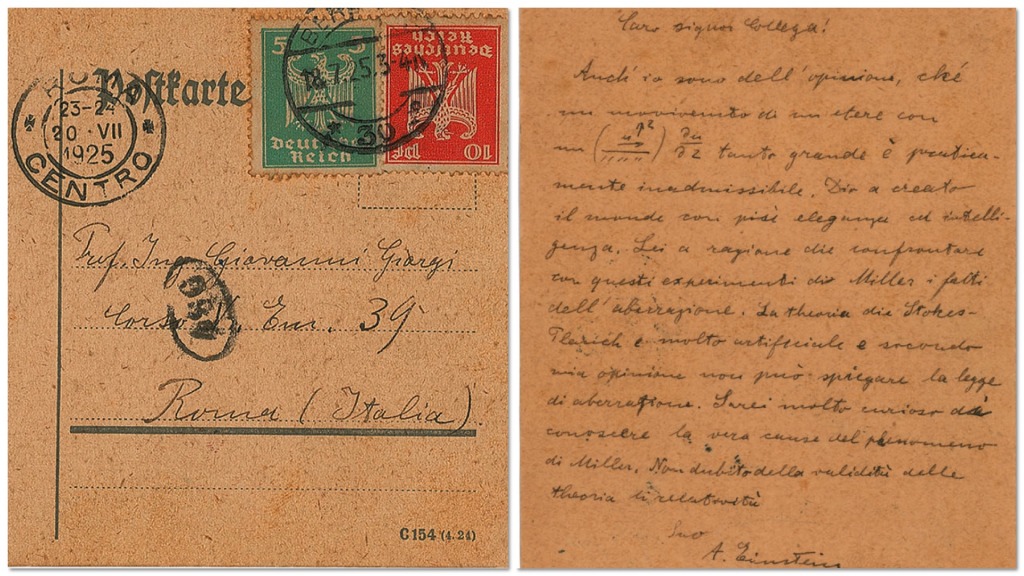 Postkarte
23-24
20 · VII
1925
CENTRO
5 5
Deutsches
Reich
18.7.25.3-4N
30
Deutsches Reich
10 Pf
Prof. Ing Giovanni Giorgi
Corso V. Em. 39
Roma (Italia)
C 154 (4. 24)
Caro signor Collega!
Anch' io sono dell' opinione, ché
un movimento di un etere con
un ∂u/∂z tanto grande è pratica-
mente inadmissibile. Dio a creato
il mondo con più eleganza ed intelli-
genza. Lei a ragione die confrontare
con questi experimenti die Miller i fatti
dell' aberrazione. La theoria die Stokes-
è molto artificiale e secondo
mia opinione non può spiegare la legge
di aberrazione. Sarei molto curioso da
conoscere la vera cause del phenomeno
di Miller. Non dubito della validitù delle
theoria di relatività
Suo
A. Einstein